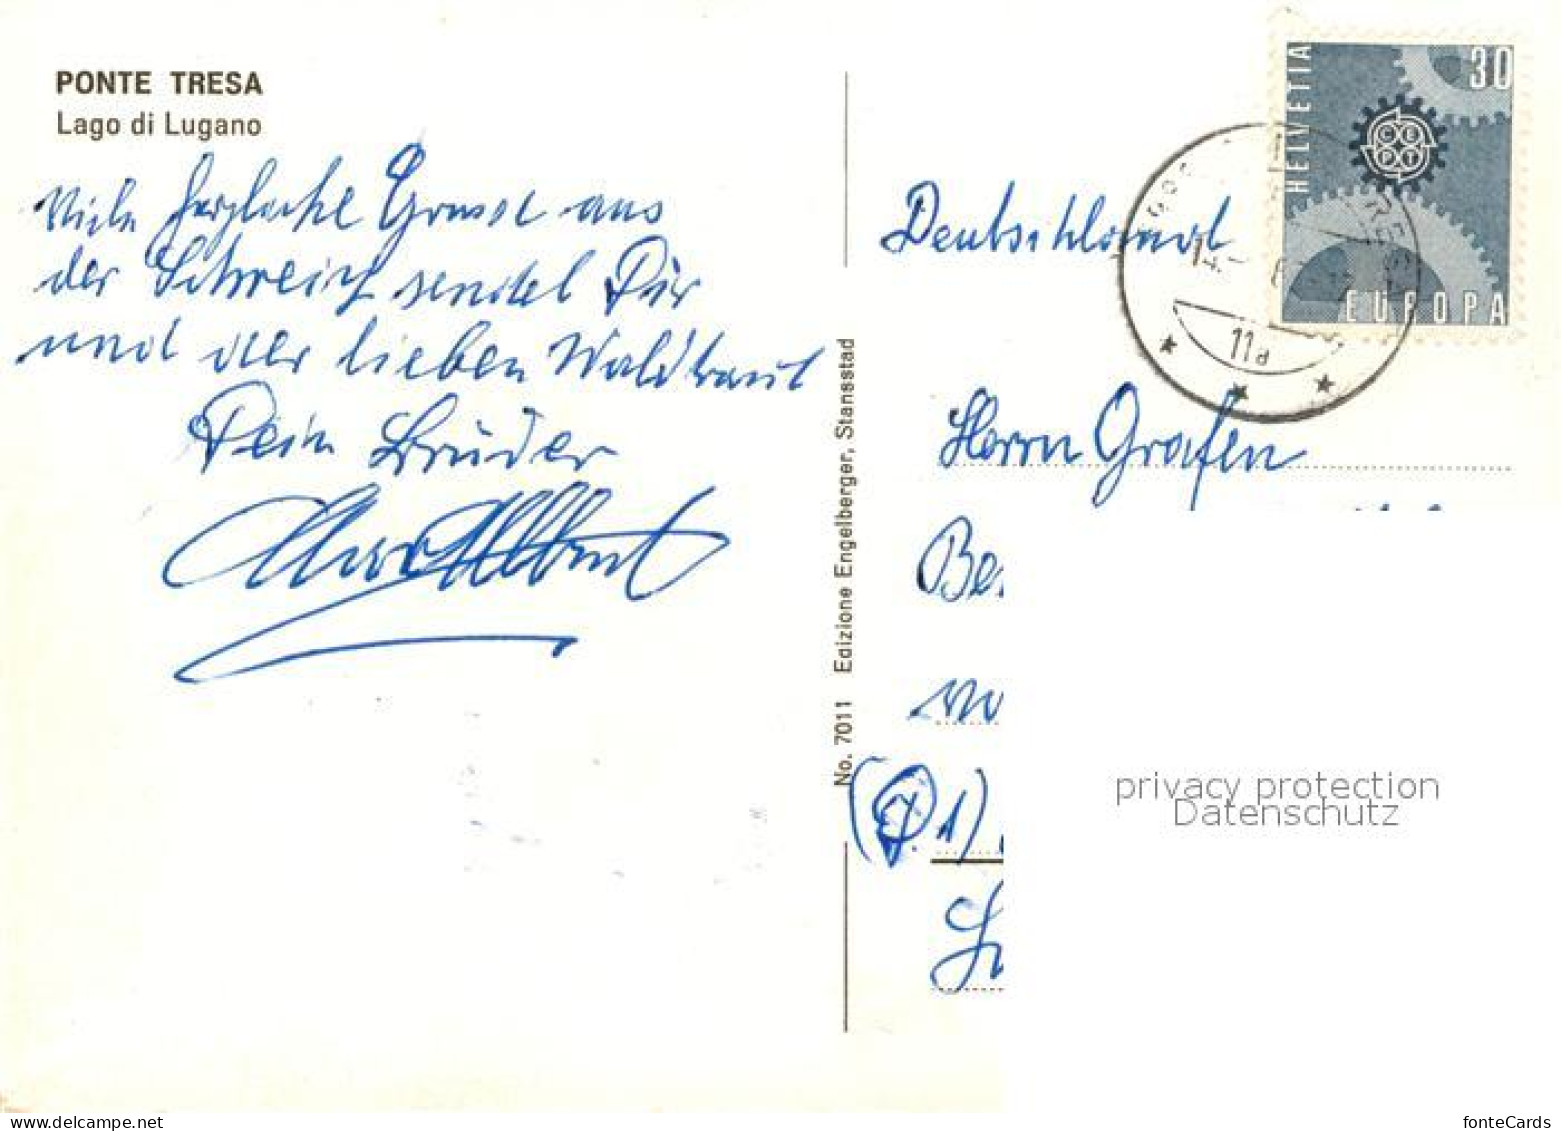 PONTE TRESA
Lago di Lugano
Viele herzliche Grüsse aus
der Schweiz sendet Dir
und der lieben Waldtraut
Dein Bruder
Albert
No. 7011 Edizione Engelberger, Stansstad
HELVETIA
30
CEPT
EUROPA
11a
Deutschland
Herrn Grafen
(1)
privacy protection
Datenschutz
delcampe.net
fonteCards